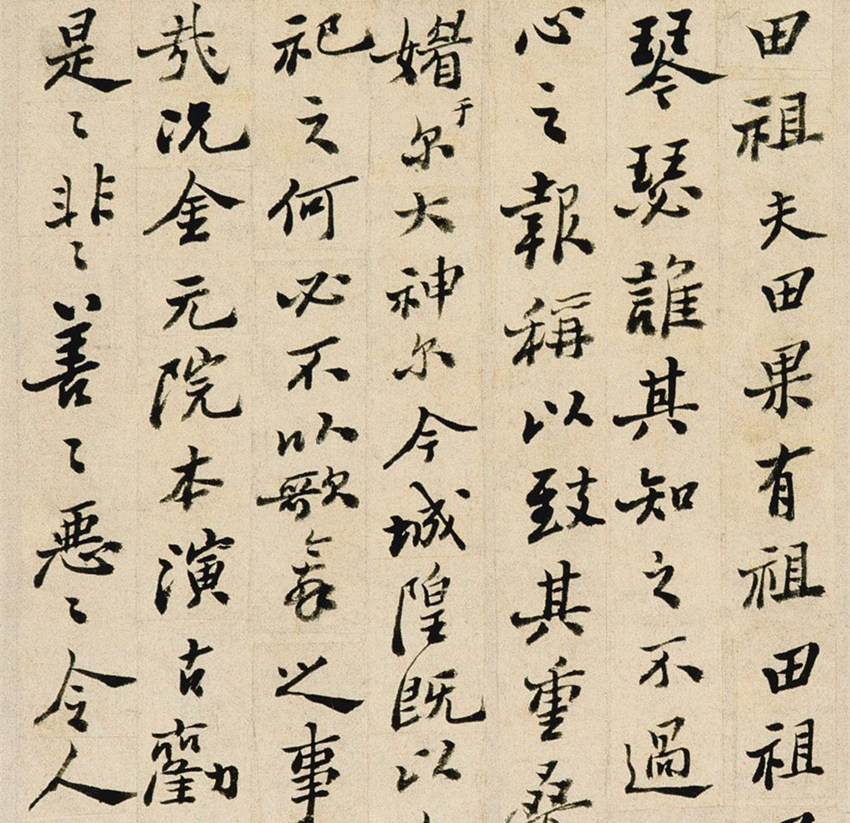 田祖夫田果有祖田祖
琴瑟誰其知之不過
心之報稱以致其重
媚于尔大神尔今城隍既以
祀之何必不以歌舞之事
哉况金元院本演古勸
是〻非〻善〻悪〻令人